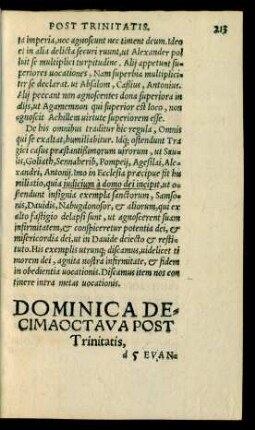 POST TRINITATIS. 213
ta imperia, nec agnoscunt nec timent deum. Ideo
et in alia delicta securi ruunt, ut Alexander pol
luit se multiplici turpitudine. Alij appetunt su
periores uocationes, Nam superbia multiplici
ter se declarat. ut Absalom, Cassius, Antonius.
Alij peccant non agnoscentes dona superiora in
alijs, ut Agamemnon qui superior est loco, non
agnoscit Achillem uirtute superiorem esse.
De his omnibus traditur hic regula, Omnis
qui se exaltat, humiliabitur. Idq; ostendunt Tra
gici casus præstantissimorum uirorum, ut Sau
lis, Goliath, Sennaherib, Pompeij, Agesilai, Ale
xandri, Antonij. Imo in Ecclesia præcipue fit hu
miliatio, quia iudicium à domo dei incipit, ut o
stendunt insignia exempla sanctorum, Samso
nis, Dauidis, Nabugdonosor, & aliorum, qui ex
alto fastigio delapsi sunt, ut agnoscerent suam
infirmitatem, & conspiceretur potentia dei, &
misericordia dei, ut in Dauide deiecto & resti
tuto. His exemplis utrunq; discamus, uidelicet ti
morem dei, agnita nostra infirmitate, & fidem
in obedientia uocationis. Discamus item nos con
tinere intra metas uocationis.
DOMINICA DE-
CIMAOCTAVA POST
Trinitatis,
d 5 EVAN=